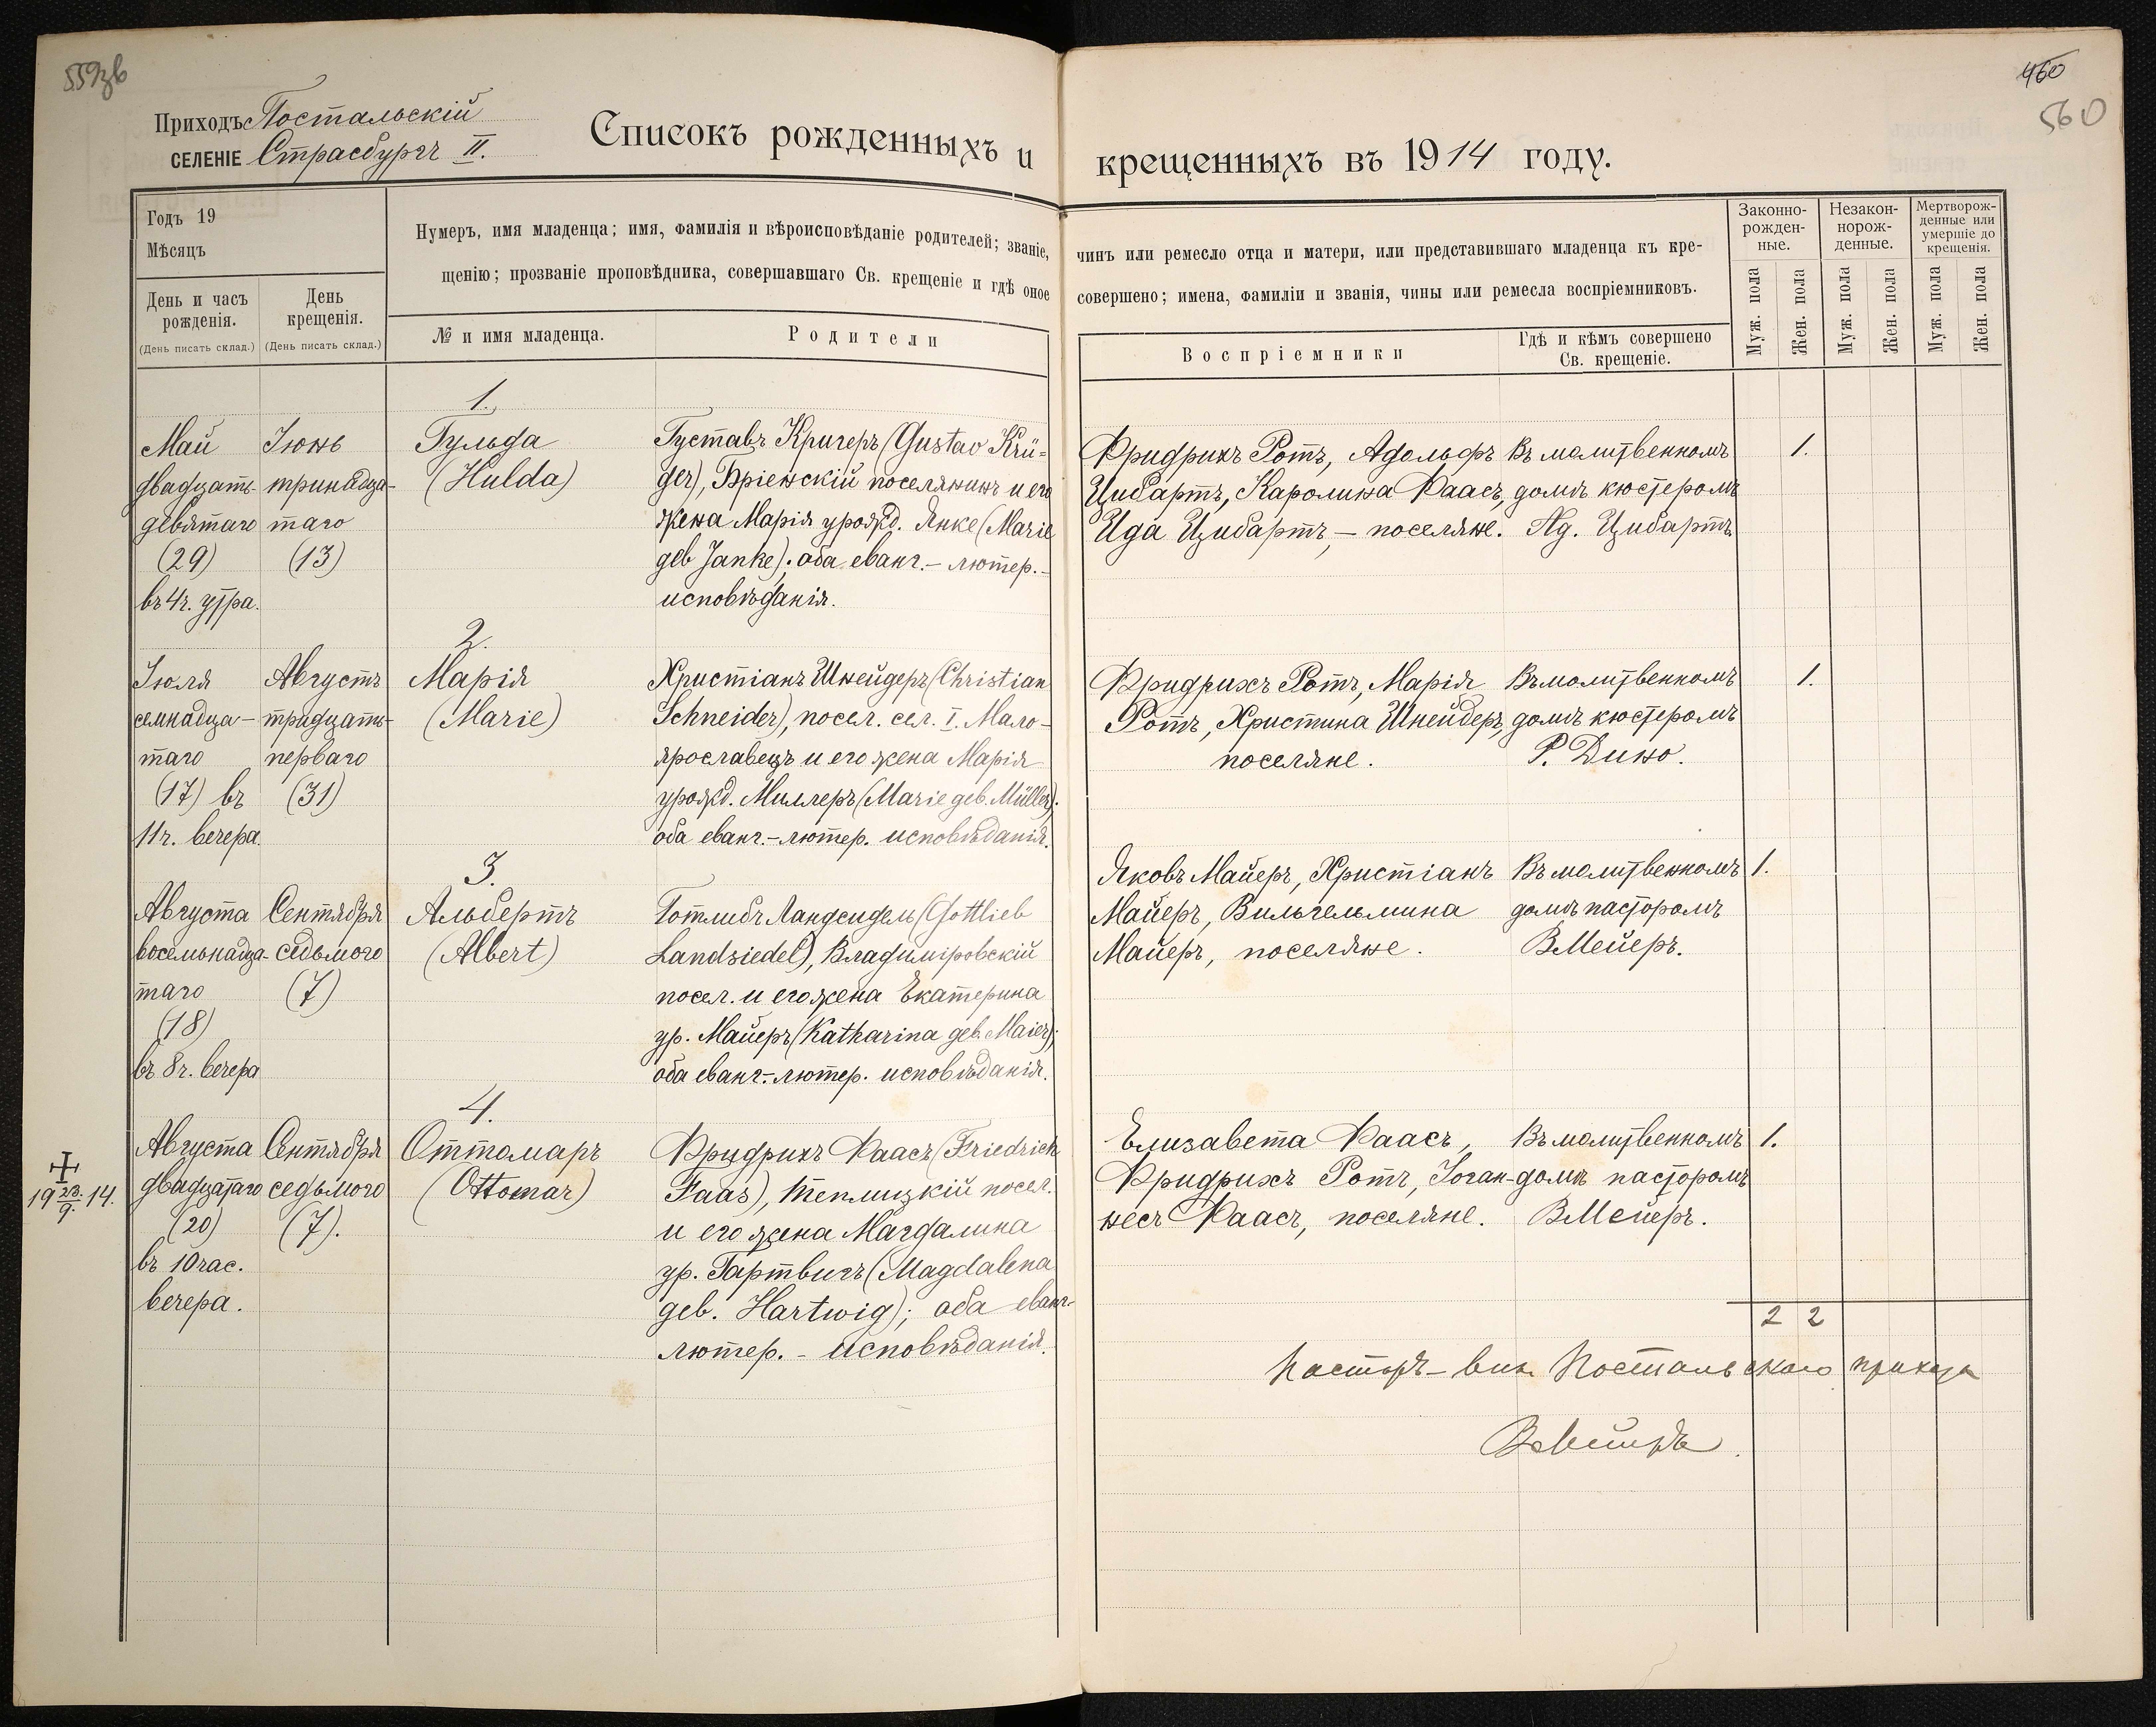 559зв
460
560
Приходъ Постальскій
СЕЛЕНІЕ Страсбургъ II.
Списокъ рожденныхъ и крещенныхъ въ 1914 году.
Годъ 19
Мѣсяцъ
День и часъ рожденія.
(День писать склад.)
День крещенія.
(День писать склад.)
Нумеръ, имя младенца; имя, фамилія и вѣроисповѣданіе родителей; званіе, чинъ или ремесло отца и матери, или представившаго младенца къ кре-
щенію; прозваніе проповѣдника, совершавшаго Св. крещеніе и гдѣ оное совершено; имена, фамиліи и званія, чины или ремесла воспріемниковъ.
№ и имя младенца.
Родители
Воспріемники
Гдѣ и кѣмъ совершено
Св. крещеніе.
Законно-
рожден-
ные.
Незакон-
норож-
денные.
Мертворож-
денные или
умершіе до
крещенія.
Муж. пола
Жен. пола
Муж. пола
Жен. пола
Муж. пола
Жен. пола
1.
Май
двадцать
девятаго
(29)
въ 4ч. утра.
Іюнь
тринадца-
таго
(13)
Гульда
(Hulda)
Густавъ Кригеръ (Gustav Krü-
ger), Бріенскій поселянинъ и его
жена Марія урожд. Янке (Marie
geb Janke); оба еванг.- лютер.-
исповѣданія.
Фридрихъ Ротъ, Адольфъ
Цибартъ, Каролина Фаасъ,
Ида Цибартъ, - поселяне.
Въ молитвенномъ
домѣ кюстеромъ
Ад. Цибартъ.
1.
2.
Іюля
семнадца-
таго
(17) въ
11ч. вечера.
Августъ
традцать-
перваго
(31)
Марія
(Marie)
Христіанъ Шнейдеръ (Christian
Schneider), посел. сел. I. Мало-
ярославецъ и его жена Марія
урожд. Миллеръ (Marie geb. Müller);
оба еванг.-лютер. исповѣданія.
Фридрихъ Ротъ, Марія
Ротъ, Христина Шнейдеръ,
поселяне.
Въ молитвенномъ
домѣ кюстеромъ
Р. Дино.
1.
3.
Августа
восемьнадца-
таго
(18)
въ 8ч. вечера
Сентября
седьмого
(7)
Альбертъ
(Albert)
Готлибъ Ландсидель (Gottlieb
Landsiedel), Владиміровскій
посел. и его жена Екатерина
ур. Майеръ (Katharina geb. Maier);
оба еванг.-лютер. исповѣданія.
Яковъ Майеръ, Христіанъ
Майеръ, Вильгельмина
Майеръ, поселяне.
Въ молитвенномъ
домѣ пасторомъ
В Мейеръ.
1.
4.
19 23./9. 14.
Августа
двадцатаго
(20)
въ 10 час.
вечера.
Сентября
седьмого
(7).
Оттомаръ
(Ottomar)
Фридрихъ Фаасъ (Friedrich
Faas), Теплицкій посел.
и его жена Магдалина
ур. Гартвигъ (Magdalena
geb. Hartwig); оба еванг-
лютер. - исповѣданія.
Елизавета Фаасъ,
Фридрихъ Ротъ, Іоган-
несъ Фаасъ, поселяне.
Въ молитвенномъ
домѣ пасторомъ
В Мейеръ.
1.
2 2
Пасторъ-вик. Постальскаго прихода
В Мейеръ.